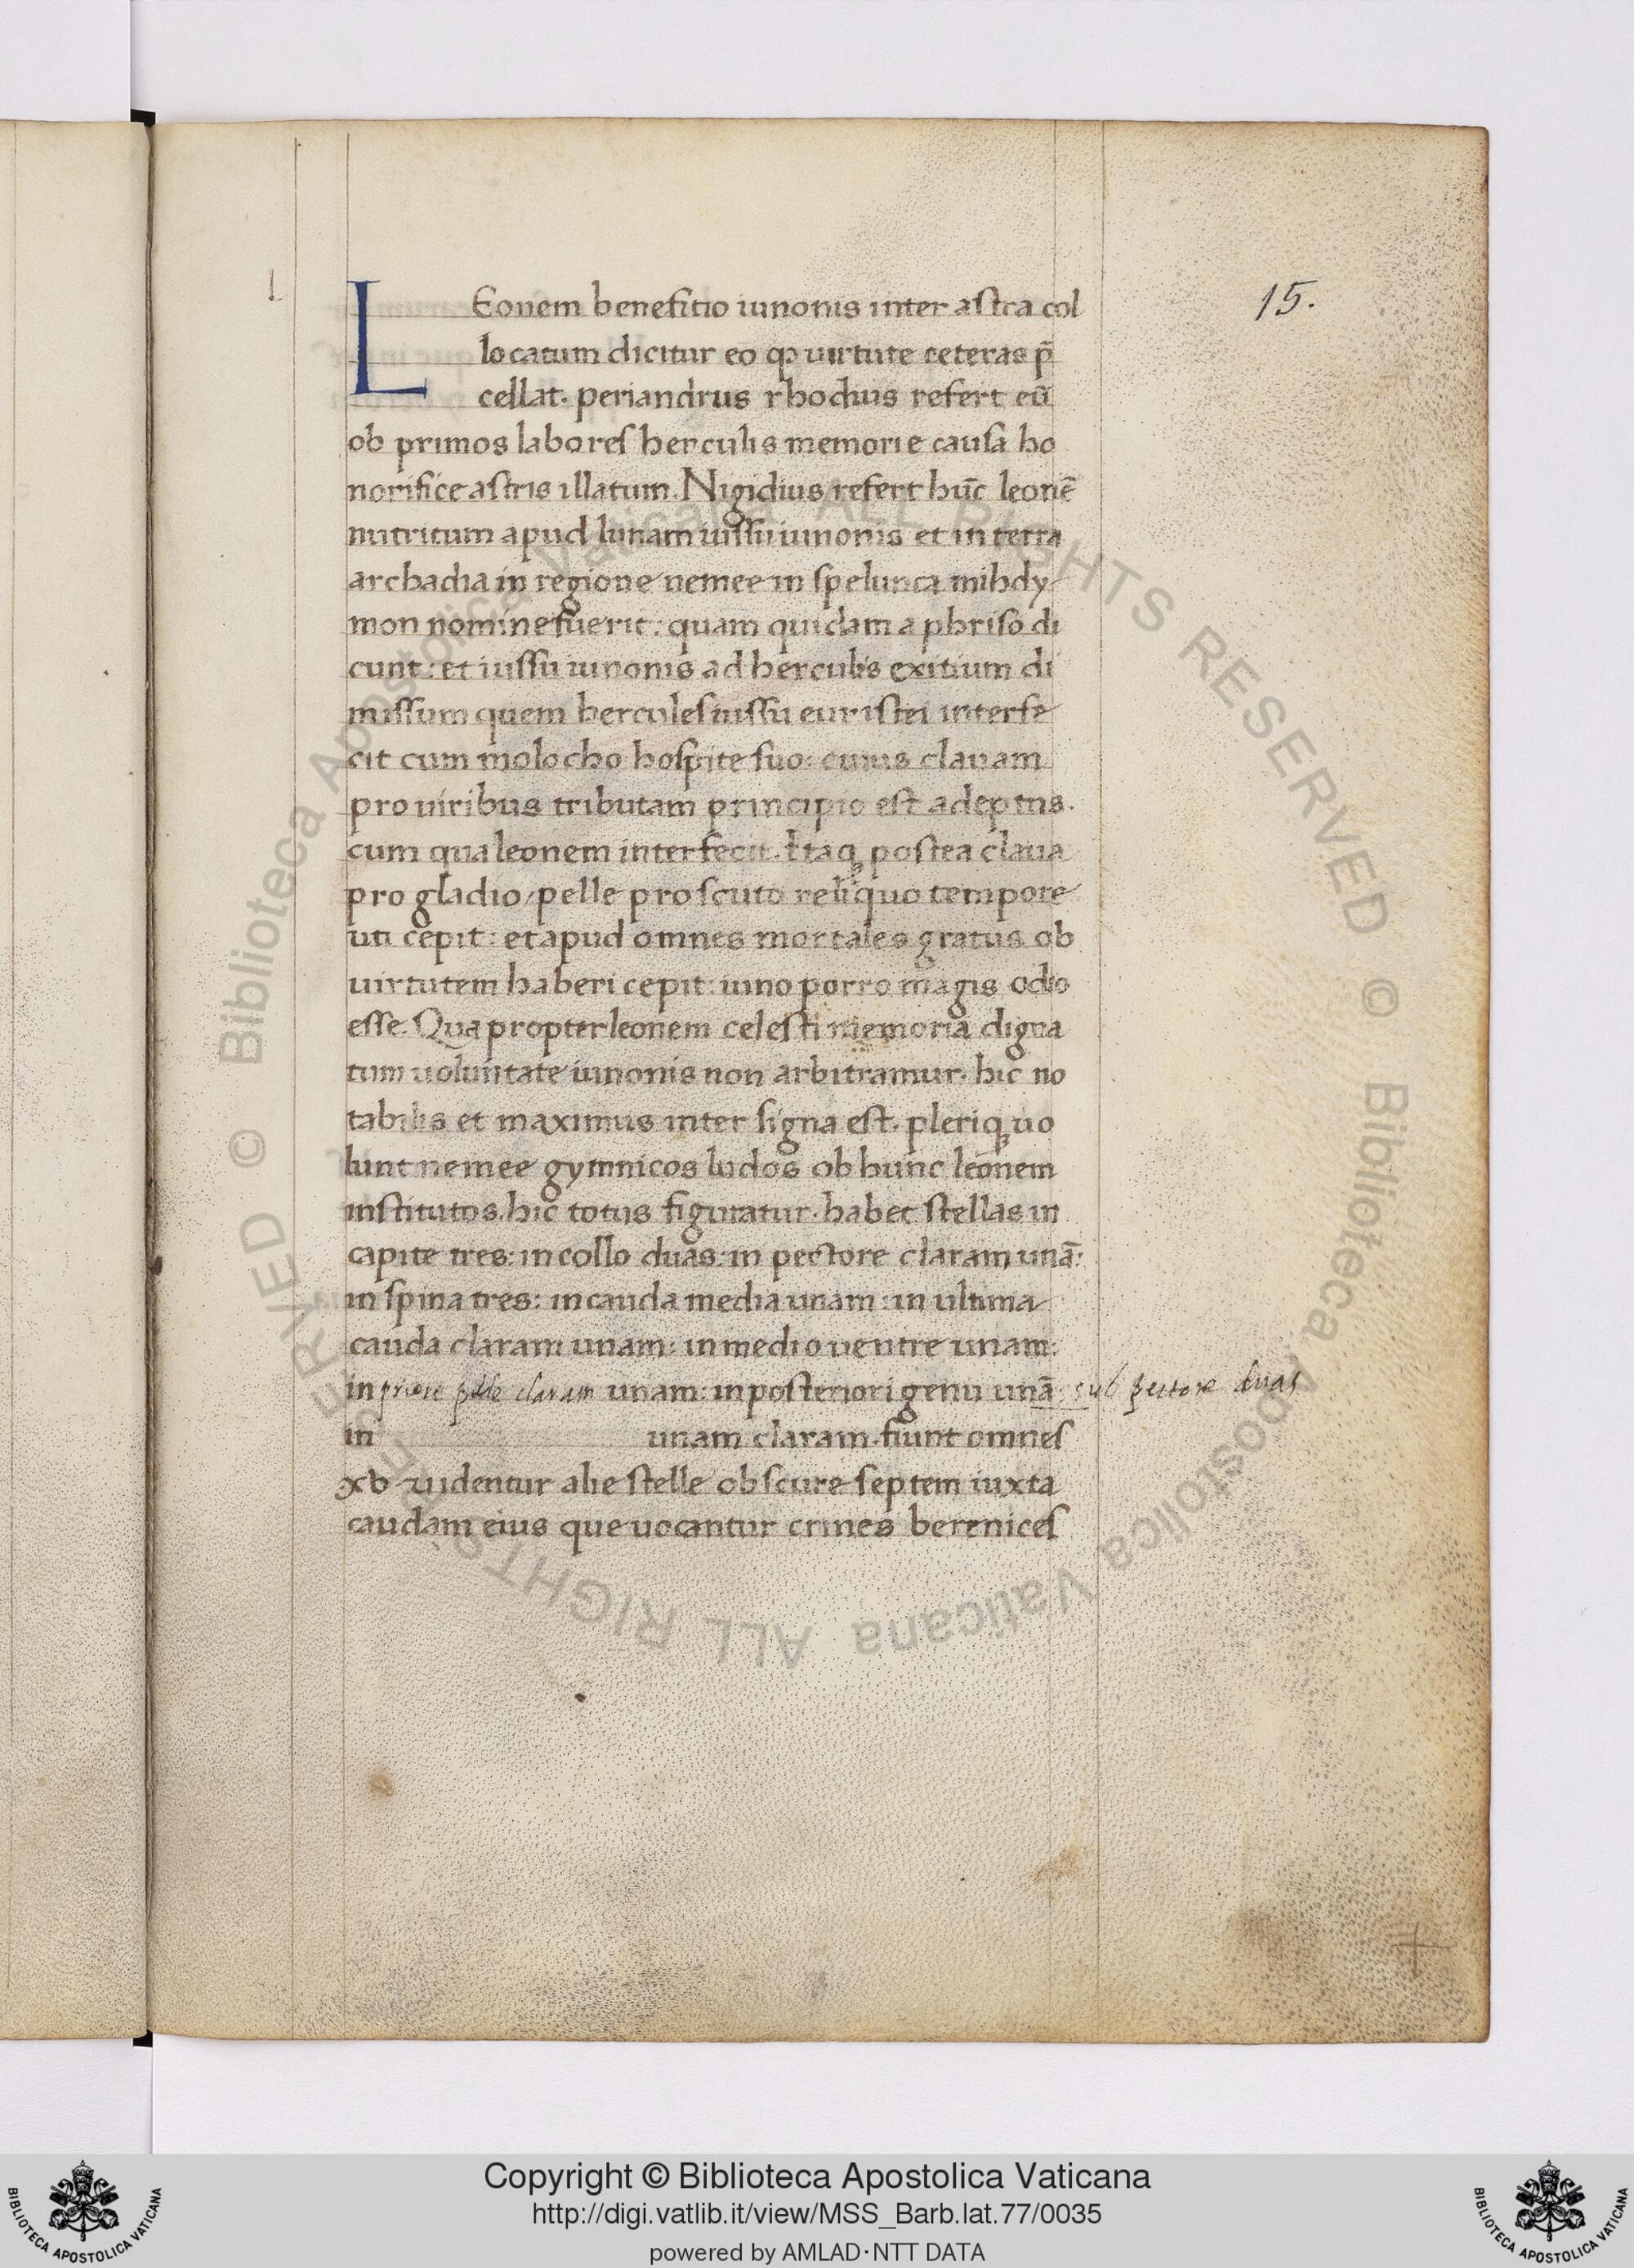 15.
l
LEonem benefitio iunonis inter aſtra col
locatum dicitur eo ꝙ uirtute ceteras p̄
cellat. periandrus rhodius refert eū
ob primos laboreſ herculis memorie cauſa ho
norifice aſtris illatum. Nigidius refert hūc leonē
nutritum apud lunam iuſſu iunonis et in terra
archadia in regione nemee in ſpelunca mihdy
mon nomine fuerit: quam quidam a phriſo di
cunt: et iuſſu iunonis ad herculis exitium di
miſſum quem herculeſ iuſſu euriſtei interfe
cit cum molocho hoſpite ſuo: cuius clauam
pro uiribus tributam principio eſt adeptus.
cum qua leonem interfecit. Itaqꝫ poſtea claua
pro gladio/pelle pro ſcuto reliquo tempore
uti cepit: et apud omnes mortales gratus ob
uirtutem haberi cepit: iuno porro magis odio
eſſe. Qua propter leonem celeſti memoria digna
tum uoluntate iunonis non arbitramur. hic no
tabilis et maximus inter ſigna eſt. pleriqꝫ uo
lunt nemee gymnicos ludos ob hunc leonem
inſtitutos. hic totus figuratur. habet ſtellas in
capite tres: in collo duas: in pectore claram unā:
in ſpina tres: in cauda media unam: in ultima
cauda claram unam: in medio uentre unam:
in priore pede claram unam: in poſteriori genu unā: sub pectore duas
in unam claram. fiunt omneſ
xv uidentur alie ſtelle obſcure ſeptem iuxta
caudam eius que uocantur crines bereniceſ
© Biblioteca Apostolica Vaticana ALL RIGHTS RESERVED
© Biblioteca Apostolica Vaticana ALL RIGHTS RESERVED
Copyright © Biblioteca Apostolica Vaticana
http://digi.vatlib.it/view/MSS_Barb.lat.77/0035
powered by AMLAD·NTT DATA
BIBLIOTECA APOSTOLICA VATICANA
BIBLIOTECA APOSTOLICA VATICANA